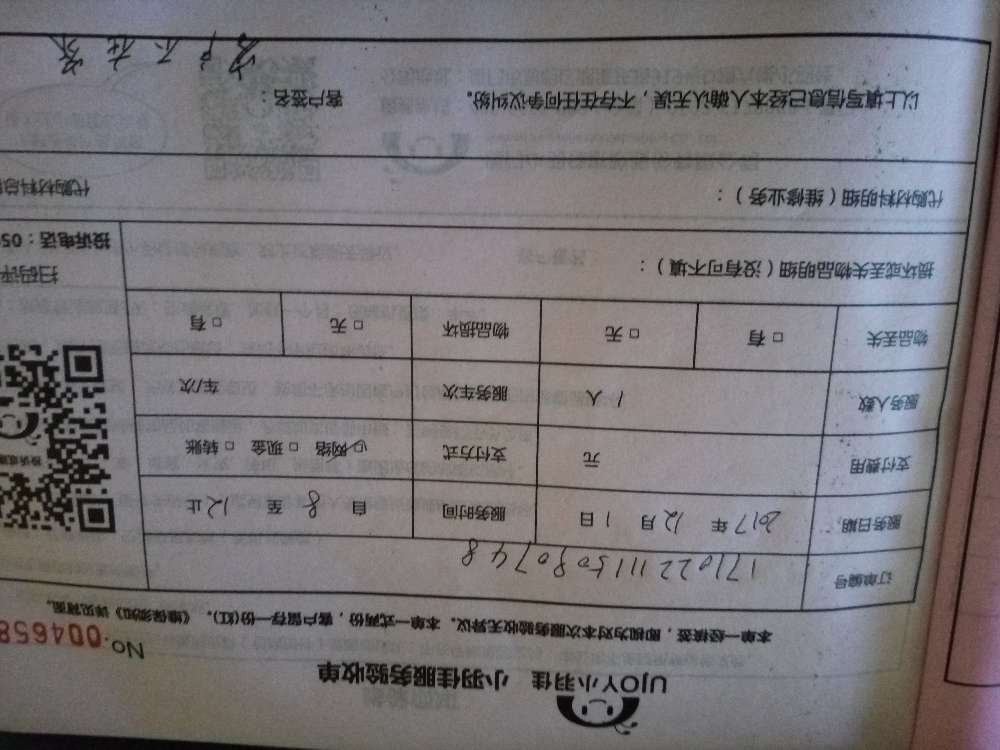 UJOY小羽佳 小羽佳服务验收单
No.004658
本单一经接签，即视为对本次服务验收无异议。本单一式两份，客户留存一份(红)。《维保须知》详见背面。
订单编号 171022111150890748
服务日期 2017年12月1日 服务时间 自8至12止
支付费用 元 支付方式 ☑网络 □现金 □转账
服务人数 1人 服务车次 车/次
物品丢失 □有 □无 物品损坏 □无 □有
损坏或丢失物品明细（没有可不填）：
扫码评
投诉电话：05
代购材料明细（维修业务）：
代购材料总
以上填写信息已经本人确认无误，不存在任何争议纠纷。
客户签名：
客户不在家